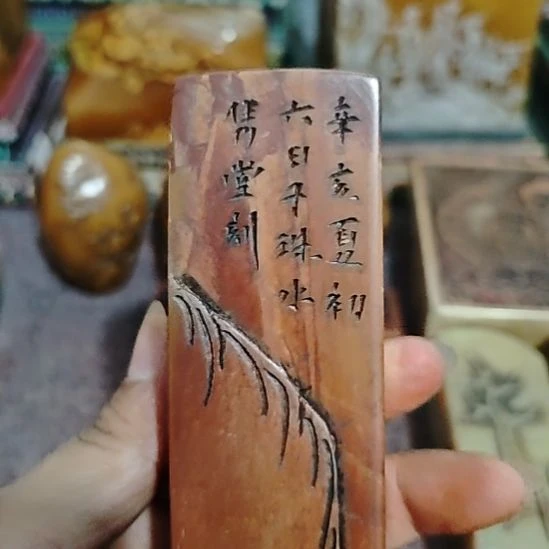 辛亥夏初
六日于珠水
隽堂刻